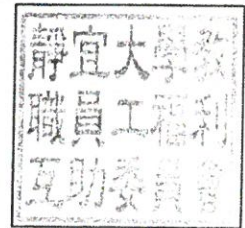 靜宜大學教
職員工福利
互助委員會